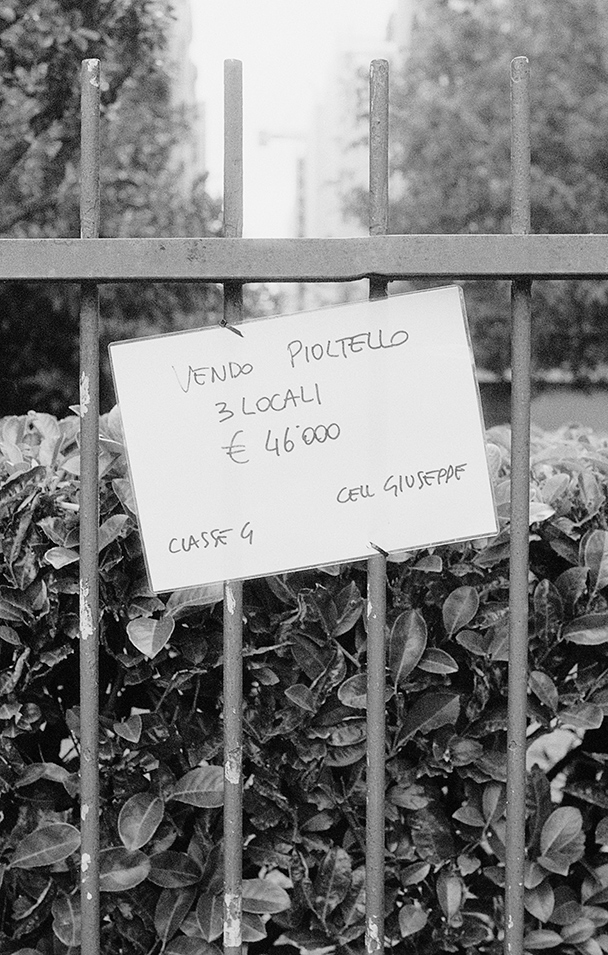 VENDO PIOLTELLO
3 LOCALI
€ 46'000
CELL GIUSEPPE
CLASSE G